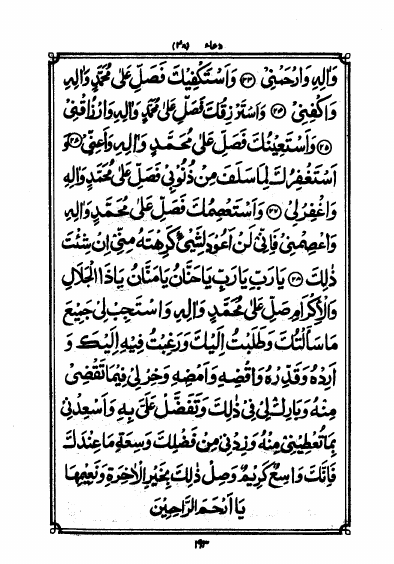 دعاء (٤٨)
وَاٰلِهٖ وَارْحَمْنِيْ ﴿٢٣﴾ وَاَسْتَكْفِيْكَ فَصَلِّ عَلٰى مُحَمَّدٍ وَاٰلِهٖ
وَاكْفِنِيْ ﴿٢٤﴾ وَاَسْتَرْزِقُكَ فَصَلِّ عَلٰى مُحَمَّدٍ وَاٰلِهٖ وَارْزُقْنِيْ
﴿٢٥﴾ وَاَسْتَعِيْنُكَ فَصَلِّ عَلٰى مُحَمَّدٍ وَاٰلِهٖ وَاَعِنِّيْ وَ
اَسْتَغْفِرُكَ لِمَا سَلَفَ مِنْ ذُنُوْبِيْ فَصَلِّ عَلٰى مُحَمَّدٍ وَاٰلِهٖ
وَاغْفِرْ لِيْ ﴿٢٧﴾ وَاَسْتَعْصِمُكَ فَصَلِّ عَلٰى مُحَمَّدٍ وَاٰلِهٖ
وَاعْصِمْنِيْ فَاِنِّيْ لَنْ اَعُوْدَ لِشَيْءٍ كَرِهْتَهٗ مِنِّيْ اِنْ شِئْتَ
ذٰلِكَ ﴿٢٨﴾ يَا رَبِّ يَا رَبِّ يَا حَنَّانُ يَا مَنَّانُ يَا ذَا الْجَلَالِ
وَالْاِكْرَامِ صَلِّ عَلٰى مُحَمَّدٍ وَاٰلِهٖ وَاسْتَجِبْ لِيْ جَمِيْعَ
مَا سَاَلْتُكَ وَطَلَبْتُ اِلَيْكَ وَرَغِبْتُ فِيْهِ اِلَيْكَ وَ
اَرِدْهُ وَقَدِّرْهُ وَاقْضِهٖ وَاَمْضِهٖ وَخِرْ لِيْ فِيْمَا تَقْضِيْ
مِنْهُ وَبَارِكْ لِيْ فِيْ ذٰلِكَ وَتَفَضَّلْ عَلَيَّ بِهٖ وَاَسْعِدْنِيْ
بِمَا تُعْطِيْنِيْ مِنْهُ وَزِدْنِيْ مِنْ فَضْلِكَ وَسَعَةِ مَا عِنْدَكَ
فَاِنَّكَ وَاسِعٌ كَرِيْمٌ وَصِلْ ذٰلِكَ بِخَيْرِ الْاٰخِرَةِ وَنَعِيْمِهَا
يَا اَرْحَمَ الرَّاحِمِيْنَ
١٩٣